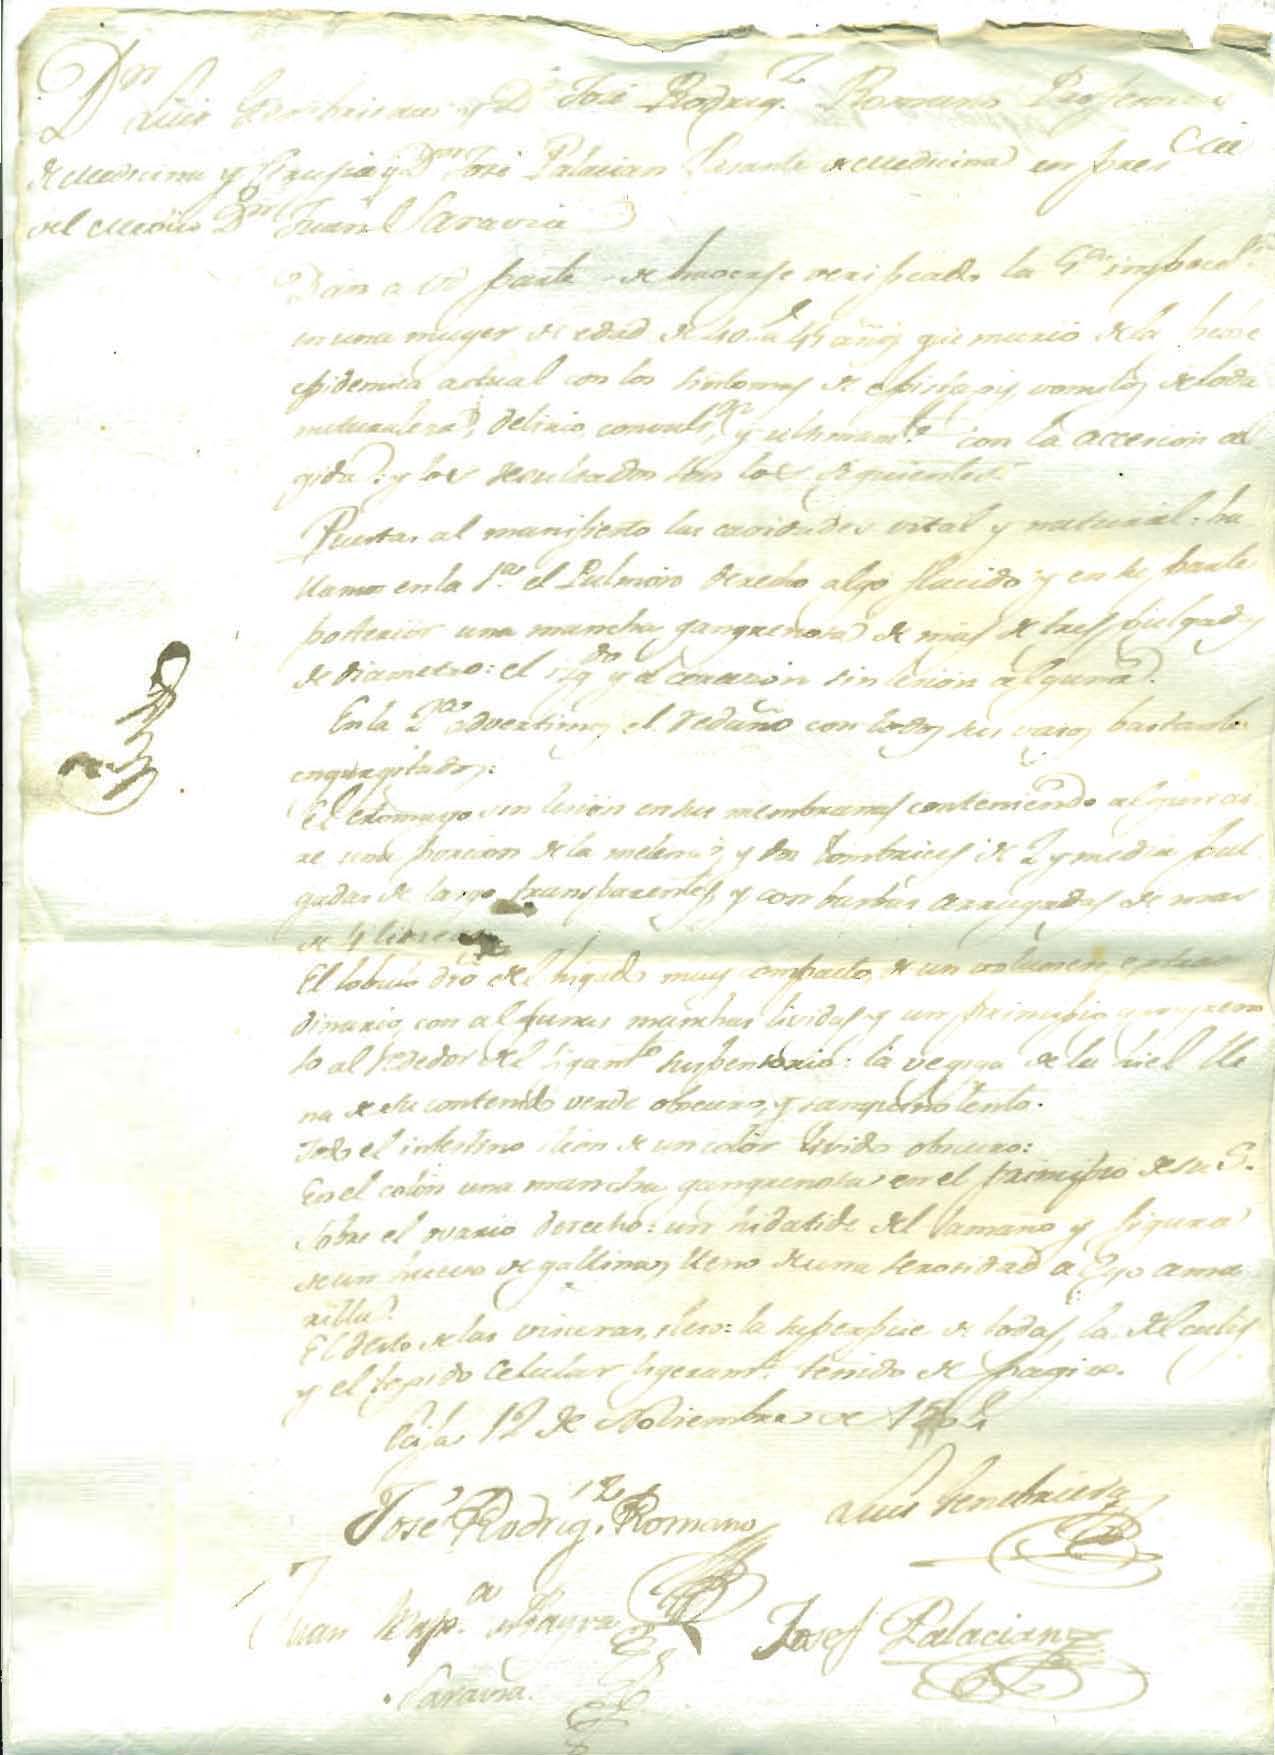 Dn
Luis y Dn José Rodrigz Romano Profesores
de Medicina y Cirugia y Dn José Palacian Pasante de Medicina en presCia
del Medico Dn Juan Saravia
Dan a Vd parte de haverse verificado la 5a inspecn
en una muger de edad de 40 a 45 años que murio de la fiebre
epidemica actual con los sintomas de epistaxis, vomitos de toda
naturaleza, delirio, convulsnes y ultimamte con la accesion al
gida: y los resultados son los siguientes.
Puestas al manifiesto las cavidades vital y natural: ha
llamos en la 1a el Pulmon derecho algo flacido y en su parte
posterior una mancha gangrenosa de mas de tres pulgadas
de diametro: el izqdo y el corazon sin lesion alguna.
En la 2a advertimos el redaño con todos sus vasos bastante
engurgitados:
El estomago sin lesion en sus membranas conteniendo algun ai
re una porcion de la melena, y dos lombrices de 2 y media pul
gadas de largo transparentes, y con barbas arrugadas de mas
de 4 lineas
El lobulo dro del higado muy compacto, de un volumen extraor
dinario, con algunas manchas lividas y un principio gangreno
so al rededor del ligamto suspensorio: la vegiga de la hiel lle
na de su contenido verde obscuro, y sanguinolento.
Todo el intestino ileon de un color livido obscuro:
En el colon una mancha gangrenosa en el principio de su S.
Sobre el ovario derecho: un hidatide del tamaño y figura
de un huevo de gallina, lleno de una serosidad a ama
rilla.
El resto de las visceras, ileso: la superficie de todas la del cutis
y el tegido celular ligeramte teñido de pagizo.
Ecija 12 de Noviembre de 1804
José Rodrigz Romano Luis
Juan Mara Josef Palacian
Saravia.